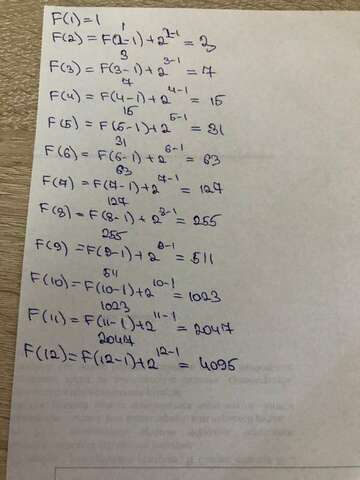 F(1)=1
1
F(2)=F(2-1)+2^2-1=3
3
F(3)=F(3-1)+2^3-1=7
7
F(4)=F(4-1)+2^4-1=15
15
F(5)=F(5-1)+2^5-1=31
31
F(6)=F(6-1)+2^6-1=63
63
F(7)=F(7-1)+2^7-1=127
127
F(8)=F(8-1)+2^8-1=255
255
F(9)=F(9-1)+2^9-1=511
511
F(10)=F(10-1)+2^10-1=1023
1023
F(11)=F(11-1)+2^11-1=2047
2047
F(12)=F(12-1)+2^12-1=4095